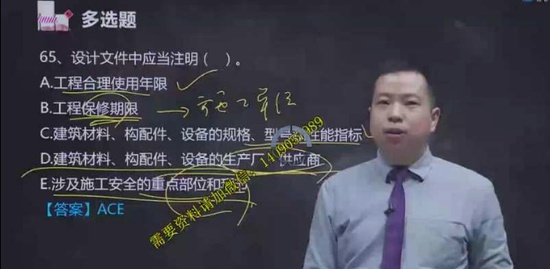 多选题
65、设计文件中应当注明( )。
A.工程合理使用年限
B.工程保修期限 → 施工单位
C.建筑材料、构配件、设备的规格、型号 性能指标
D.建筑材料、构配件、设备的生产厂 供应商
E.涉及施工安全的重点部位和
【答案】ACE
需要资料请加微信